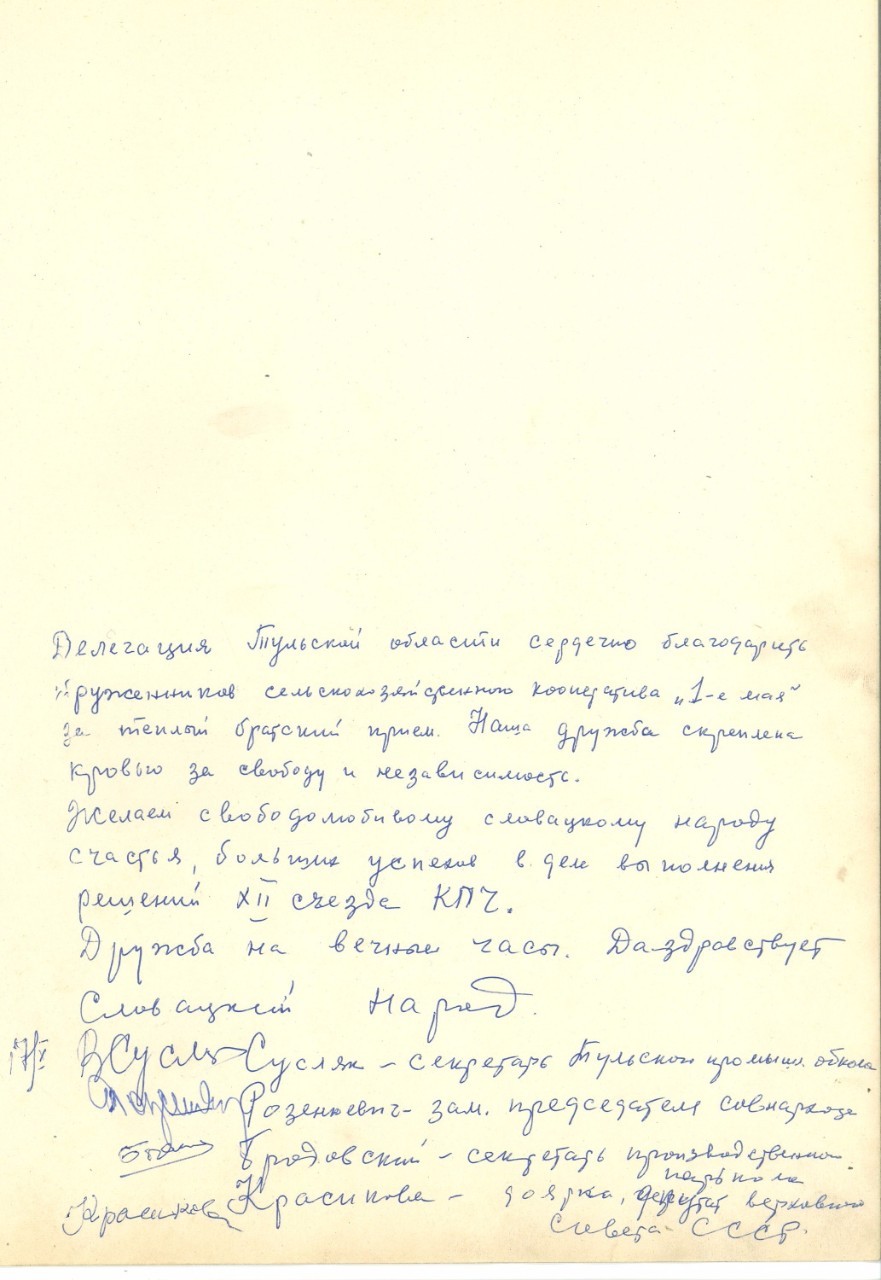 Делегация Тульской области сердечно благодарить
труженников сельскохозяйственного кооператива „1-е мая“
за теплый братский прием. Наша дружба скреплена
кровью за свободу и независимость.
Желаем свободолюбивому словацкому народу
счастья, больших успехов в деле выполнения
решений XII съезда КПЧ.
Дружба на вечные часы. Да здравствует
Словацкий народ.
Сусляк – секретарь Тульского промышл. обкома
Розенкевич – зам. председателя совнархоза
Бродовский – секретарь производственного
парткома
Красикова Красикова – доярка, депутат верховного
Совета СССР.